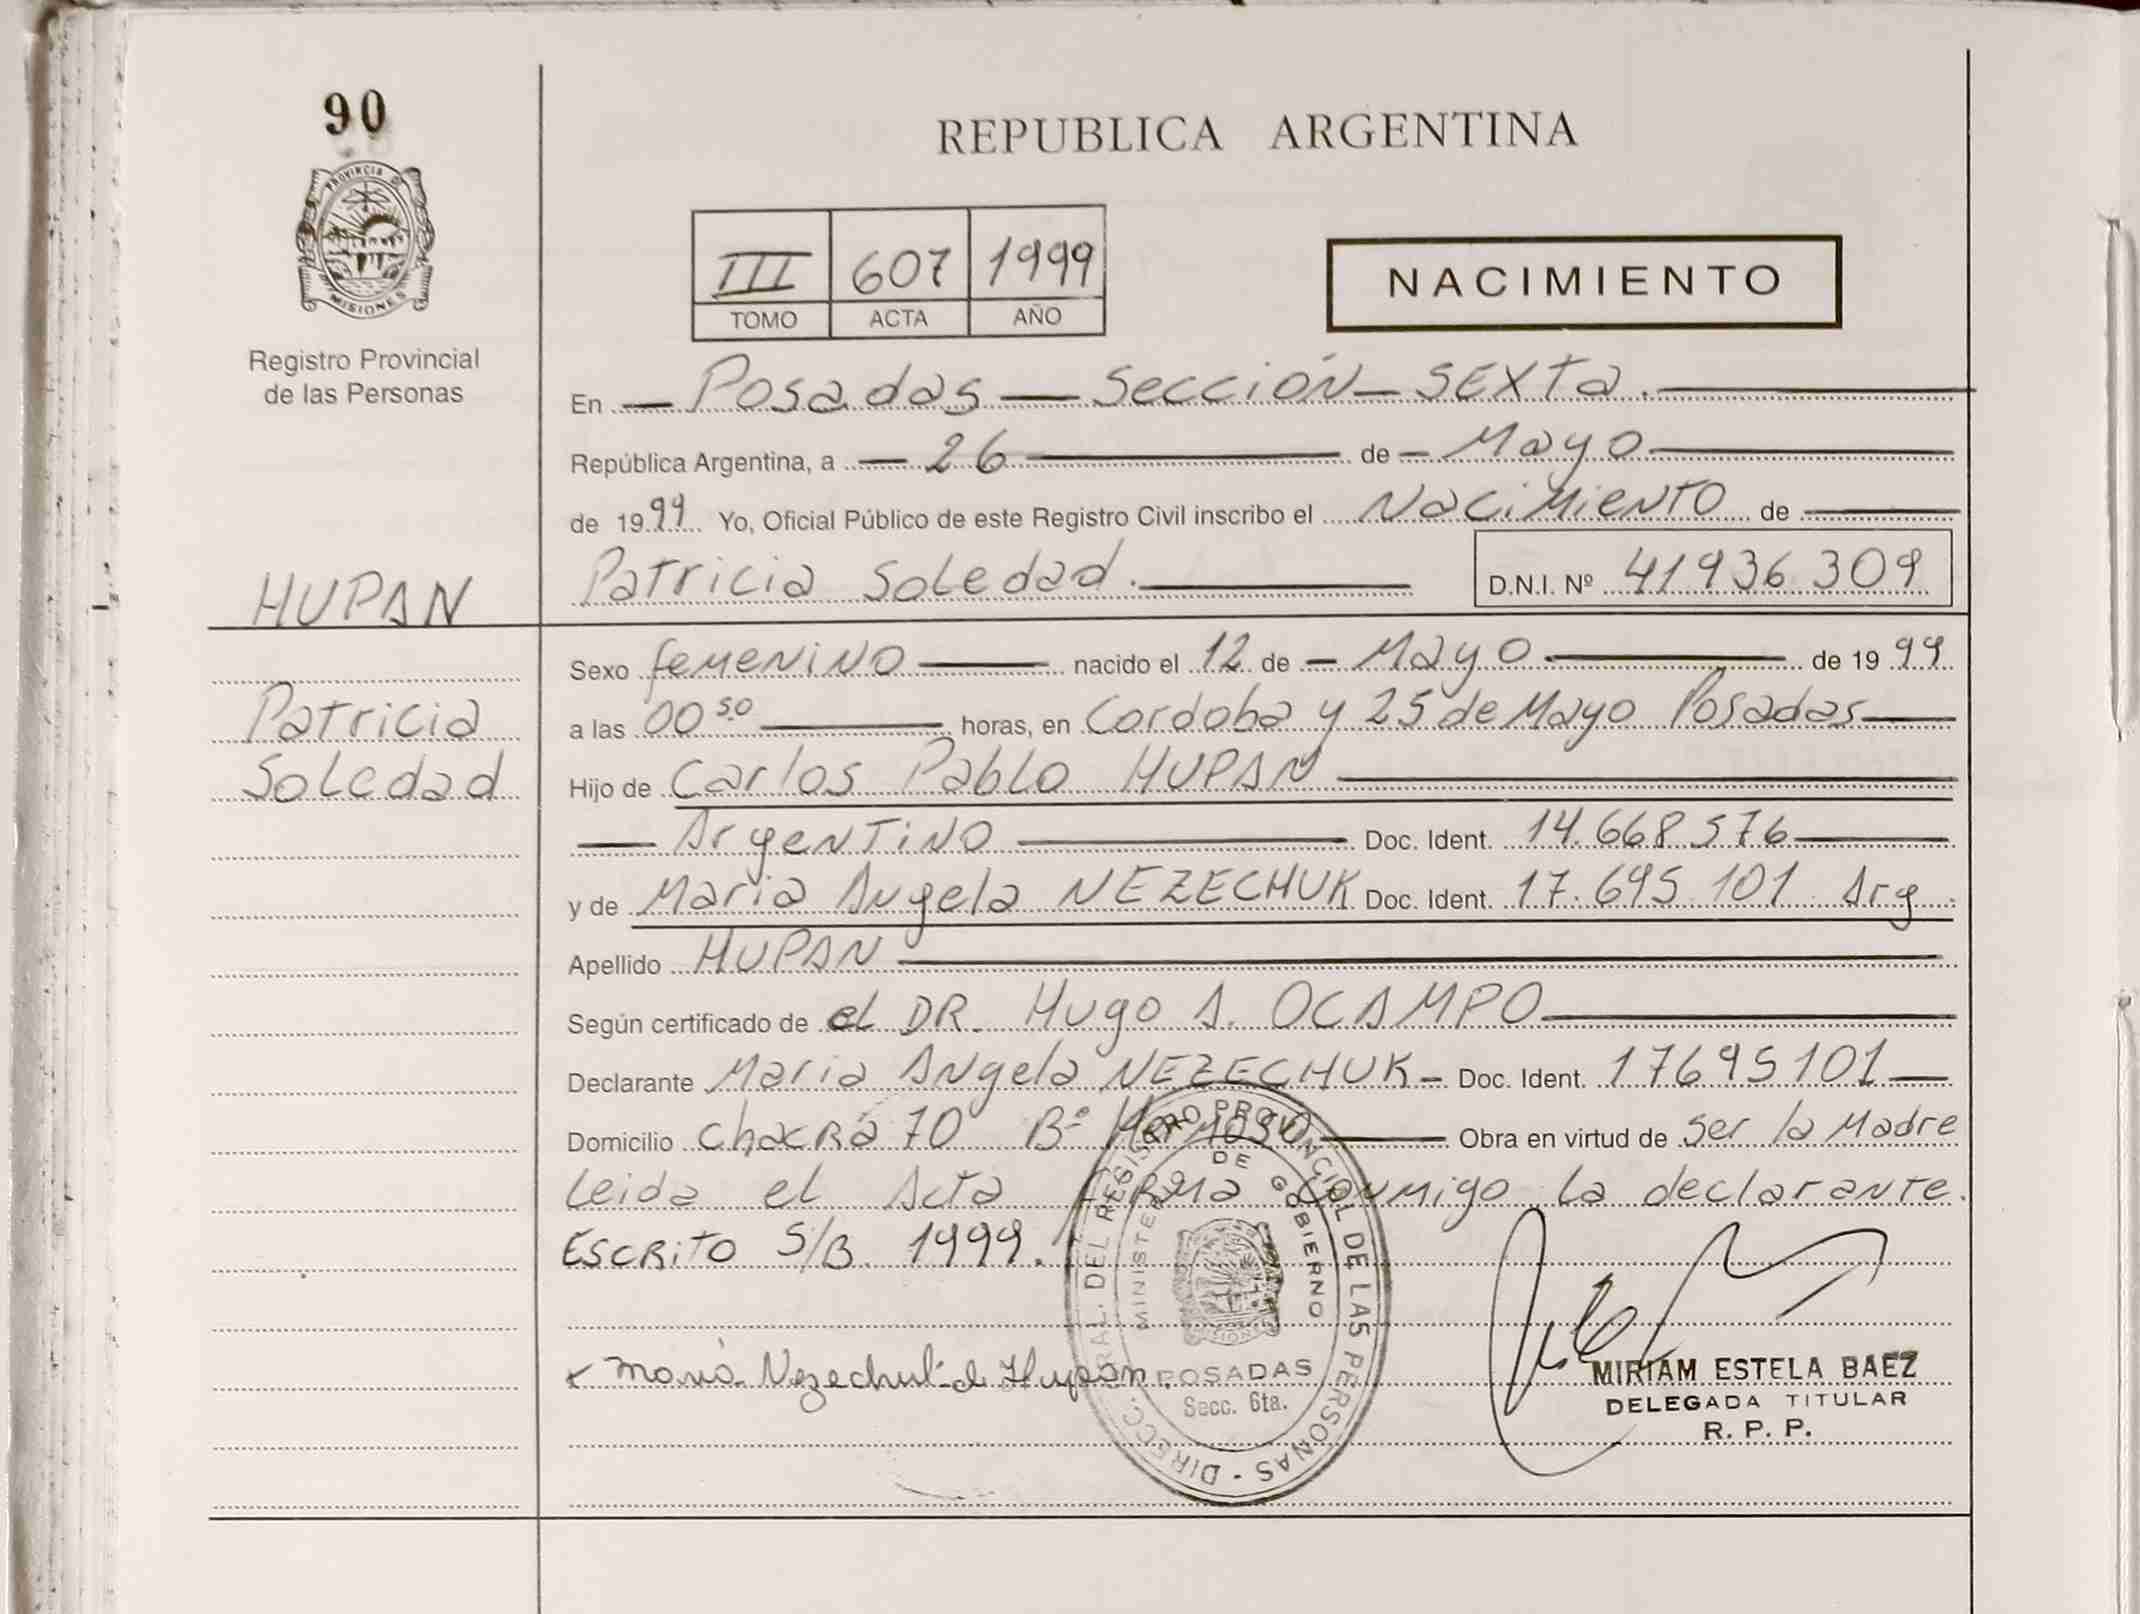 90
PROVINCIA D
MISIONES
Registro Provincial
de las Personas
HUPAN
Patricia
Soledad
REPUBLICA ARGENTINA
III 607 1999
TOMO ACTA AÑO
NACIMIENTO
En Posadas - Sección - SEXTA.
República Argentina, a 26 de Mayo
de 1999 Yo, Oficial Público de este Registro Civil inscribo el Nacimiento de
Patricia Soledad. D.N.I. Nº 41936309
Sexo femenino nacido el 12 de Mayo de 1999
a las 00 50 horas, en Cordoba y 25 de Mayo Posadas
Hijo de Carlos Pablo HUPAN
Argentino Doc. Ident. 14.668576
y de Maria Angela NEZECHUK Doc. Ident. 17.695.101 Arg
Apellido HUPAN
Según certificado de el DR. Hugo A. OCAMPO
Declarante Maria Angela NEZECHUK - Doc. Ident. 17695101
Domicilio chacra 70 Bº Hermoso Obra en virtud de ser la Madre
Leida el Acta firma conmigo la declarante.
ESCRITO S/B. 1999.
DIRECC. GRAL. DEL REGISTRO PROVINCIAL DE LAS PERSONAS
MINISTERIO DE GOBIERNO
MISIONES
x Maria Nezechuk de Hupan.
POSADAS
Secc. 6ta.
MIRIAM ESTELA BAEZ
DELEGADA TITULAR
R. P. P.